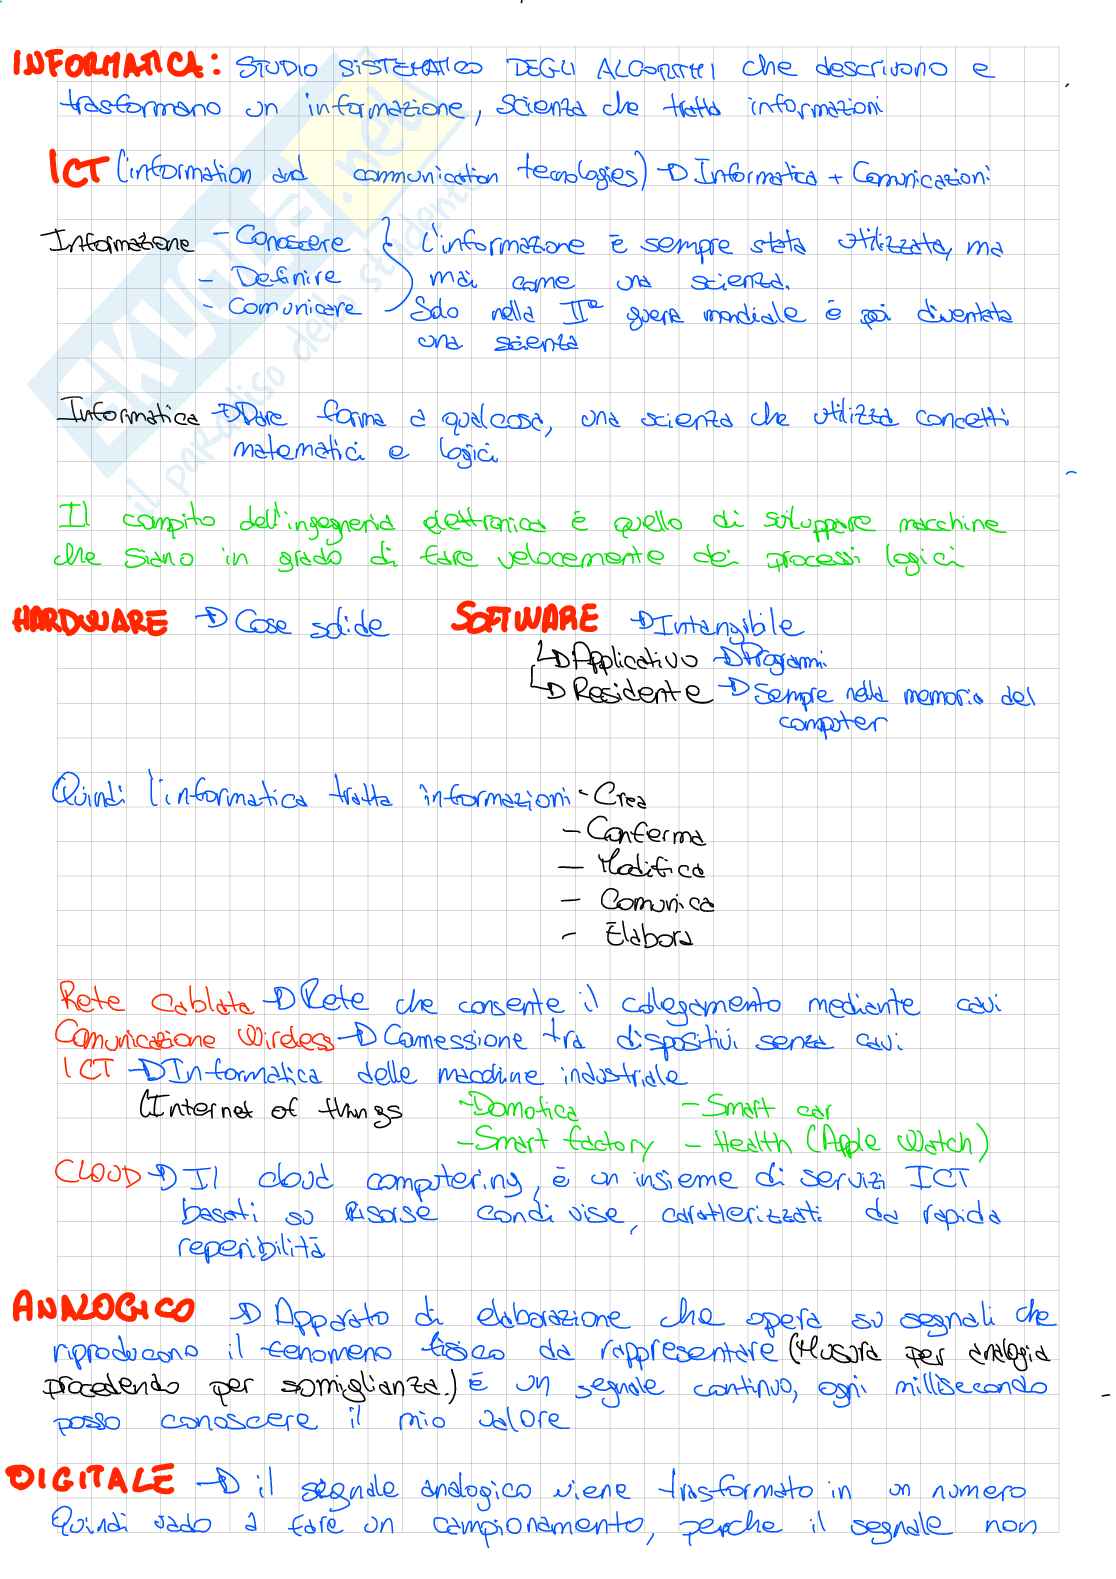 INFORMATICA: STUDIO SISTEMATICO DEGLI ALGORITMI che descrivono e
trasformano un informazione, scienza che tratta informazioni
ICT (information and communication tecnologies) → Informatica + Comunicazioni
Informazione - Conoscere } L'informazione è sempre stata utilizzata, ma
- Definire mai come una scienza.
- Comunicare Solo nella IIª guerra mondiale è poi diventata
una scienza
Informatica → Dare forma a qualcosa, una scienza che utilizza concetti
matematici e logici
Il compito dell'ingegneria elettronica è quello di sviluppare macchine
che siano in grado di fare velocemente dei processi logici
HARDWARE → Cose solide SOFTWARE → Intangibile
→ Applicativo → Programmi
→ Residente → Sempre nella memoria del
computer
Quindi l'informatica tratta informazioni - Crea
- Conferma
- Modifica
- Comunica
- Elabora
Rete Cablata → Rete che consente il collegamento mediante cavi
Comunicazione Wireless → Connessione tra dispositivi senza cavi
ICT → Informatica delle macchine industriale
(Internet of things - Domotica - Smart car
- Smart factory - Health (Apple Watch)
CLOUD → Il cloud computering, è un insieme di servizi ICT
basati su Risorse condivise, caratterizzati da rapida
reperibilità
ANALOGICO → Apparato di elaborazione che opera su segnali che
riproducono il fenomeno fisico da rappresentare (Misura per analogia
procedendo per somiglianza.) È un segnale continuo, ogni millisecondo
posso conoscere il mio valore
DIGITALE → il segnale analogico viene trasformato in un numero
Quindi vado a fare un campionamento, perche il segnale non
SKUOLA.net
il paradiso dello studente